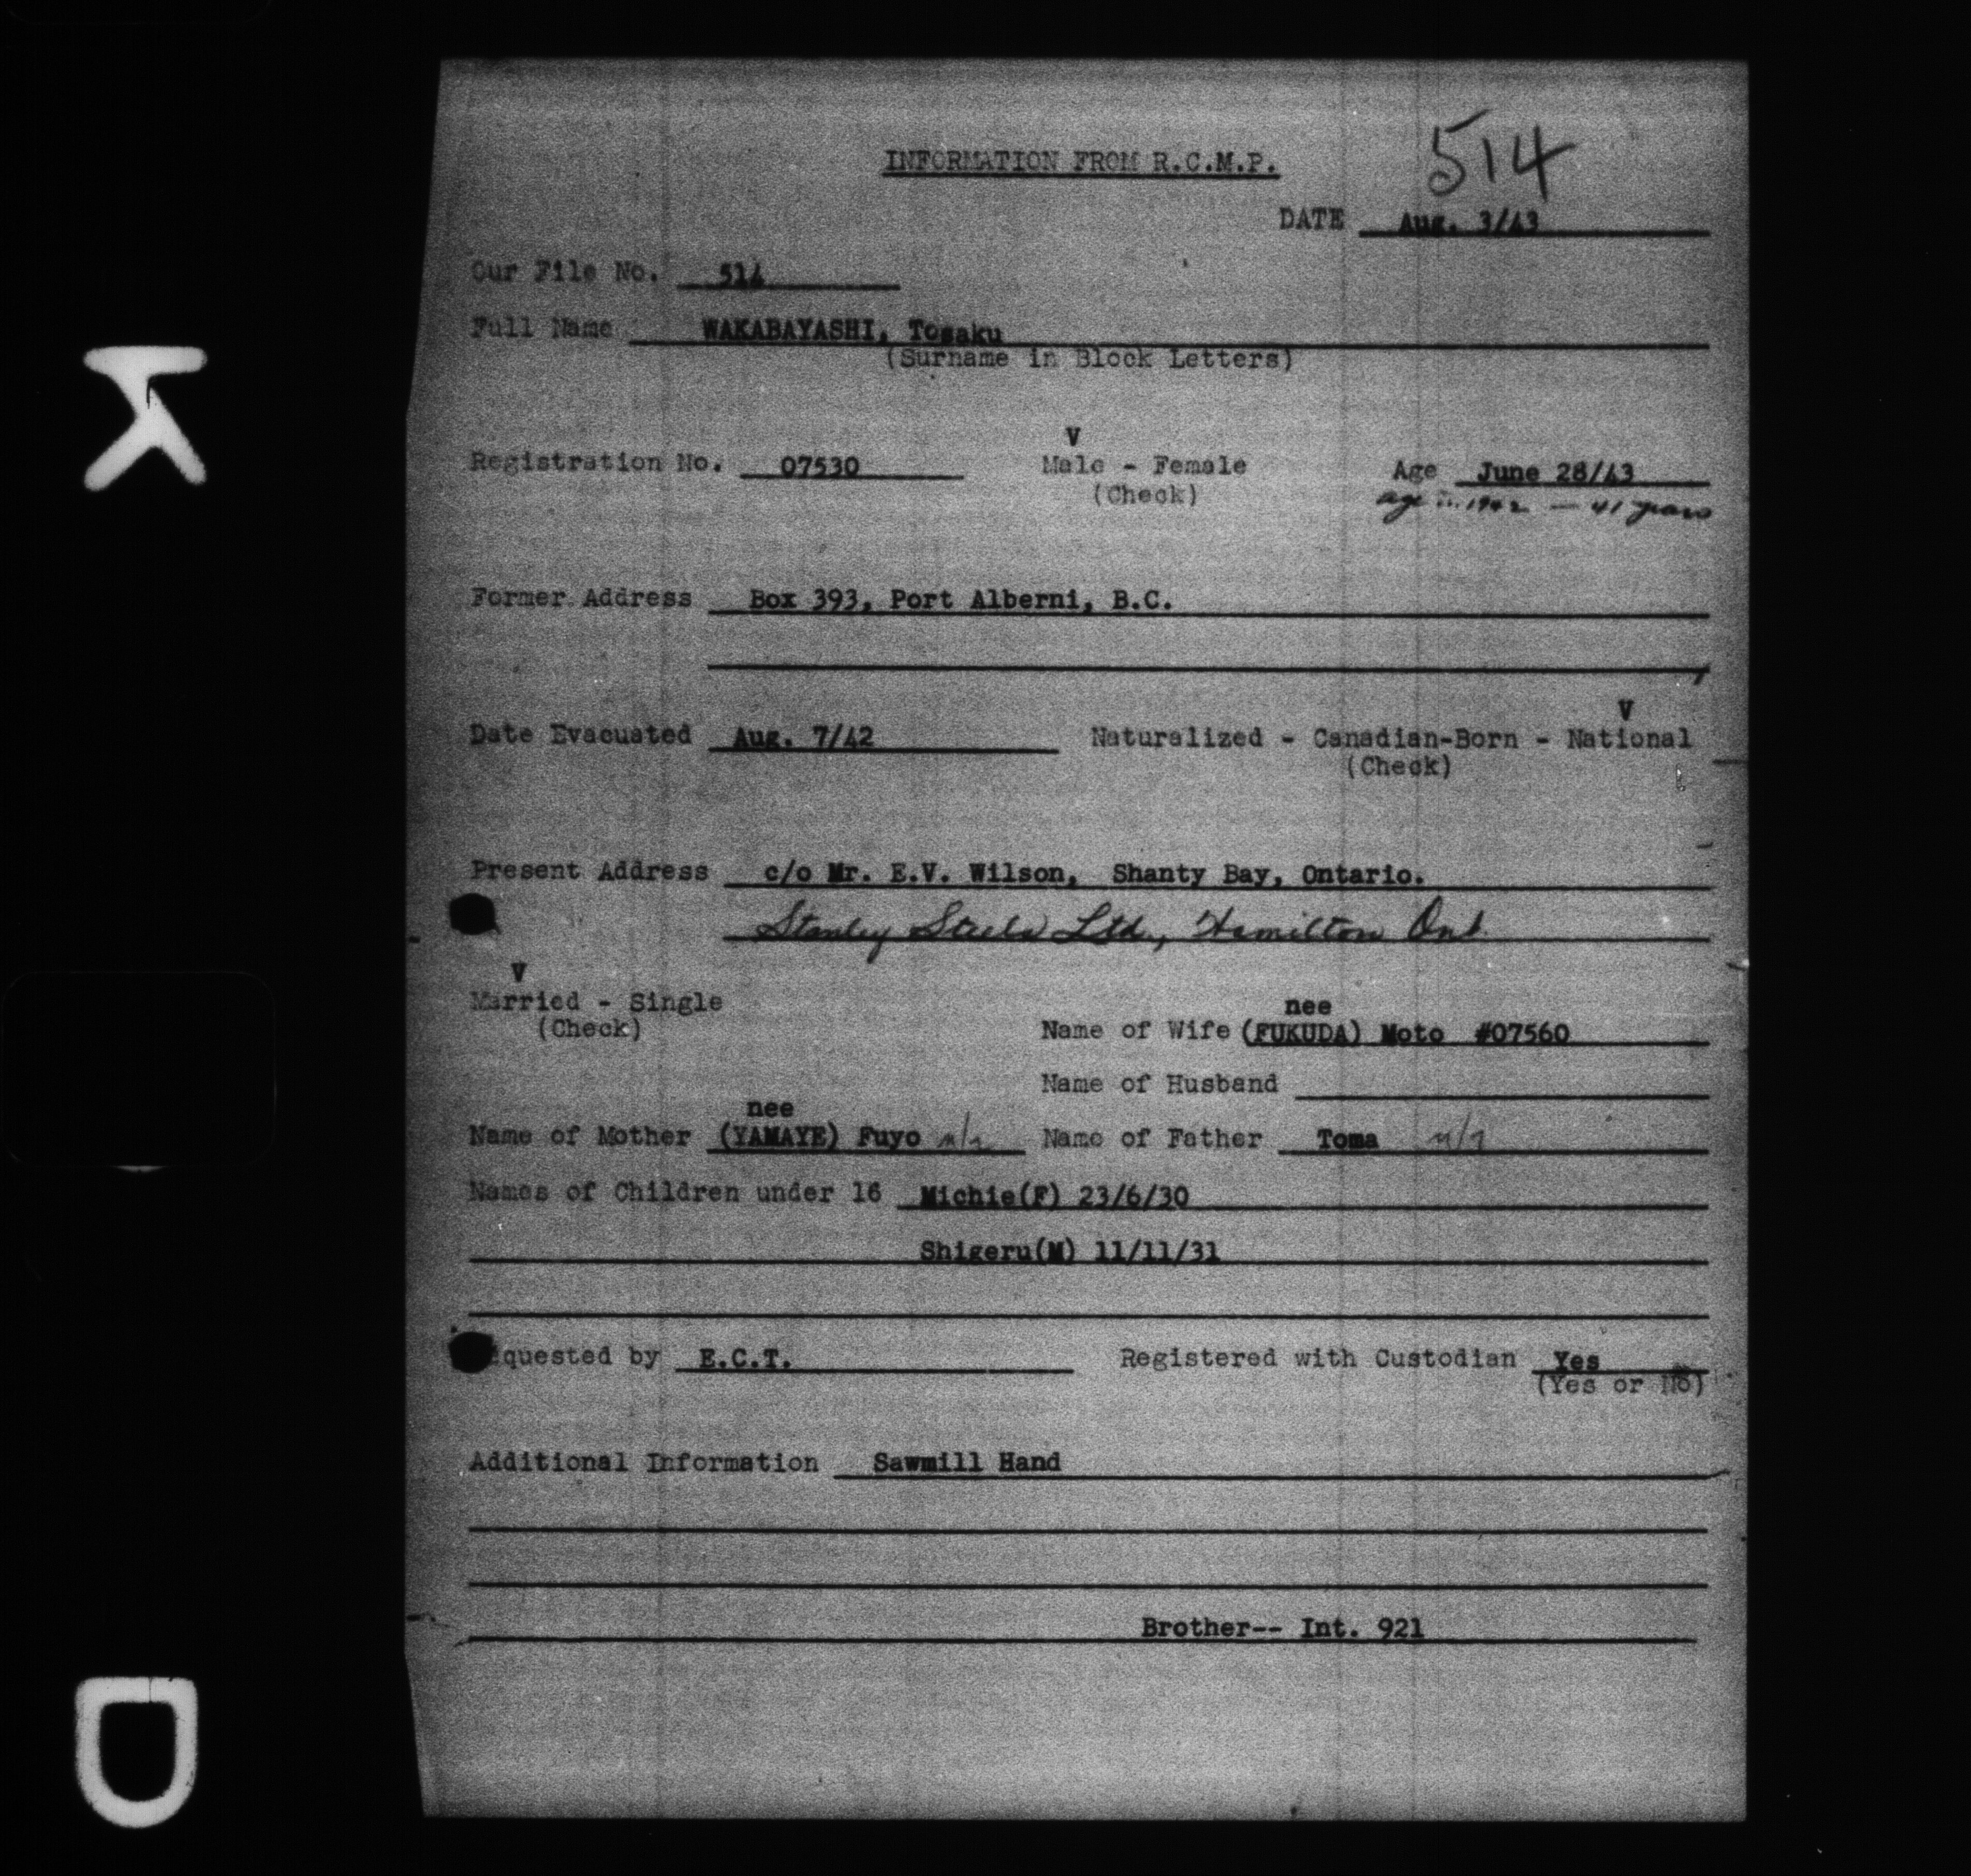 INFORMATION FROM R.C.M.P.
514
DATE Aug. 3/43
Our File No. 514
Full Name WAKABAYASHI, Tosaku
(Surname in Block Letters)
V
Registration No. 07530 Male - Female Age June 28/43
(Check) age in 1942 — 41 years
Former Address Box 393, Port Alberni, B.C.
V
Date Evacuated Aug. 7/42 Naturalized - Canadian-Born - National
(Check)
Present Address c/o Mr. E.V. Wilson, Shanty Bay, Ontario.
Stanley Steels Ltd., Hamilton Ont.
V
Married - Single
(Check)
nee
Name of Wife (FUKUDA) Moto #07560
Name of Husband
nee
Name of Mother (YAMAYE) Fuyo n/r Name of Father Toma n/r
Names of Children under 16 Michie(F) 23/6/30
Shigeru(M) 11/11/31
quested by E.C.T. Registered with Custodian Yes
(Yes or No)
Additional Information Sawmill Hand
Brother-- Int. 921
K
D